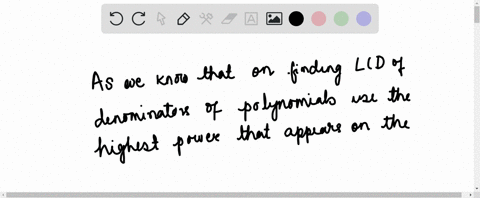 As we know that on finding LCD of
denominators of polynomials use the
highest power that appears on the